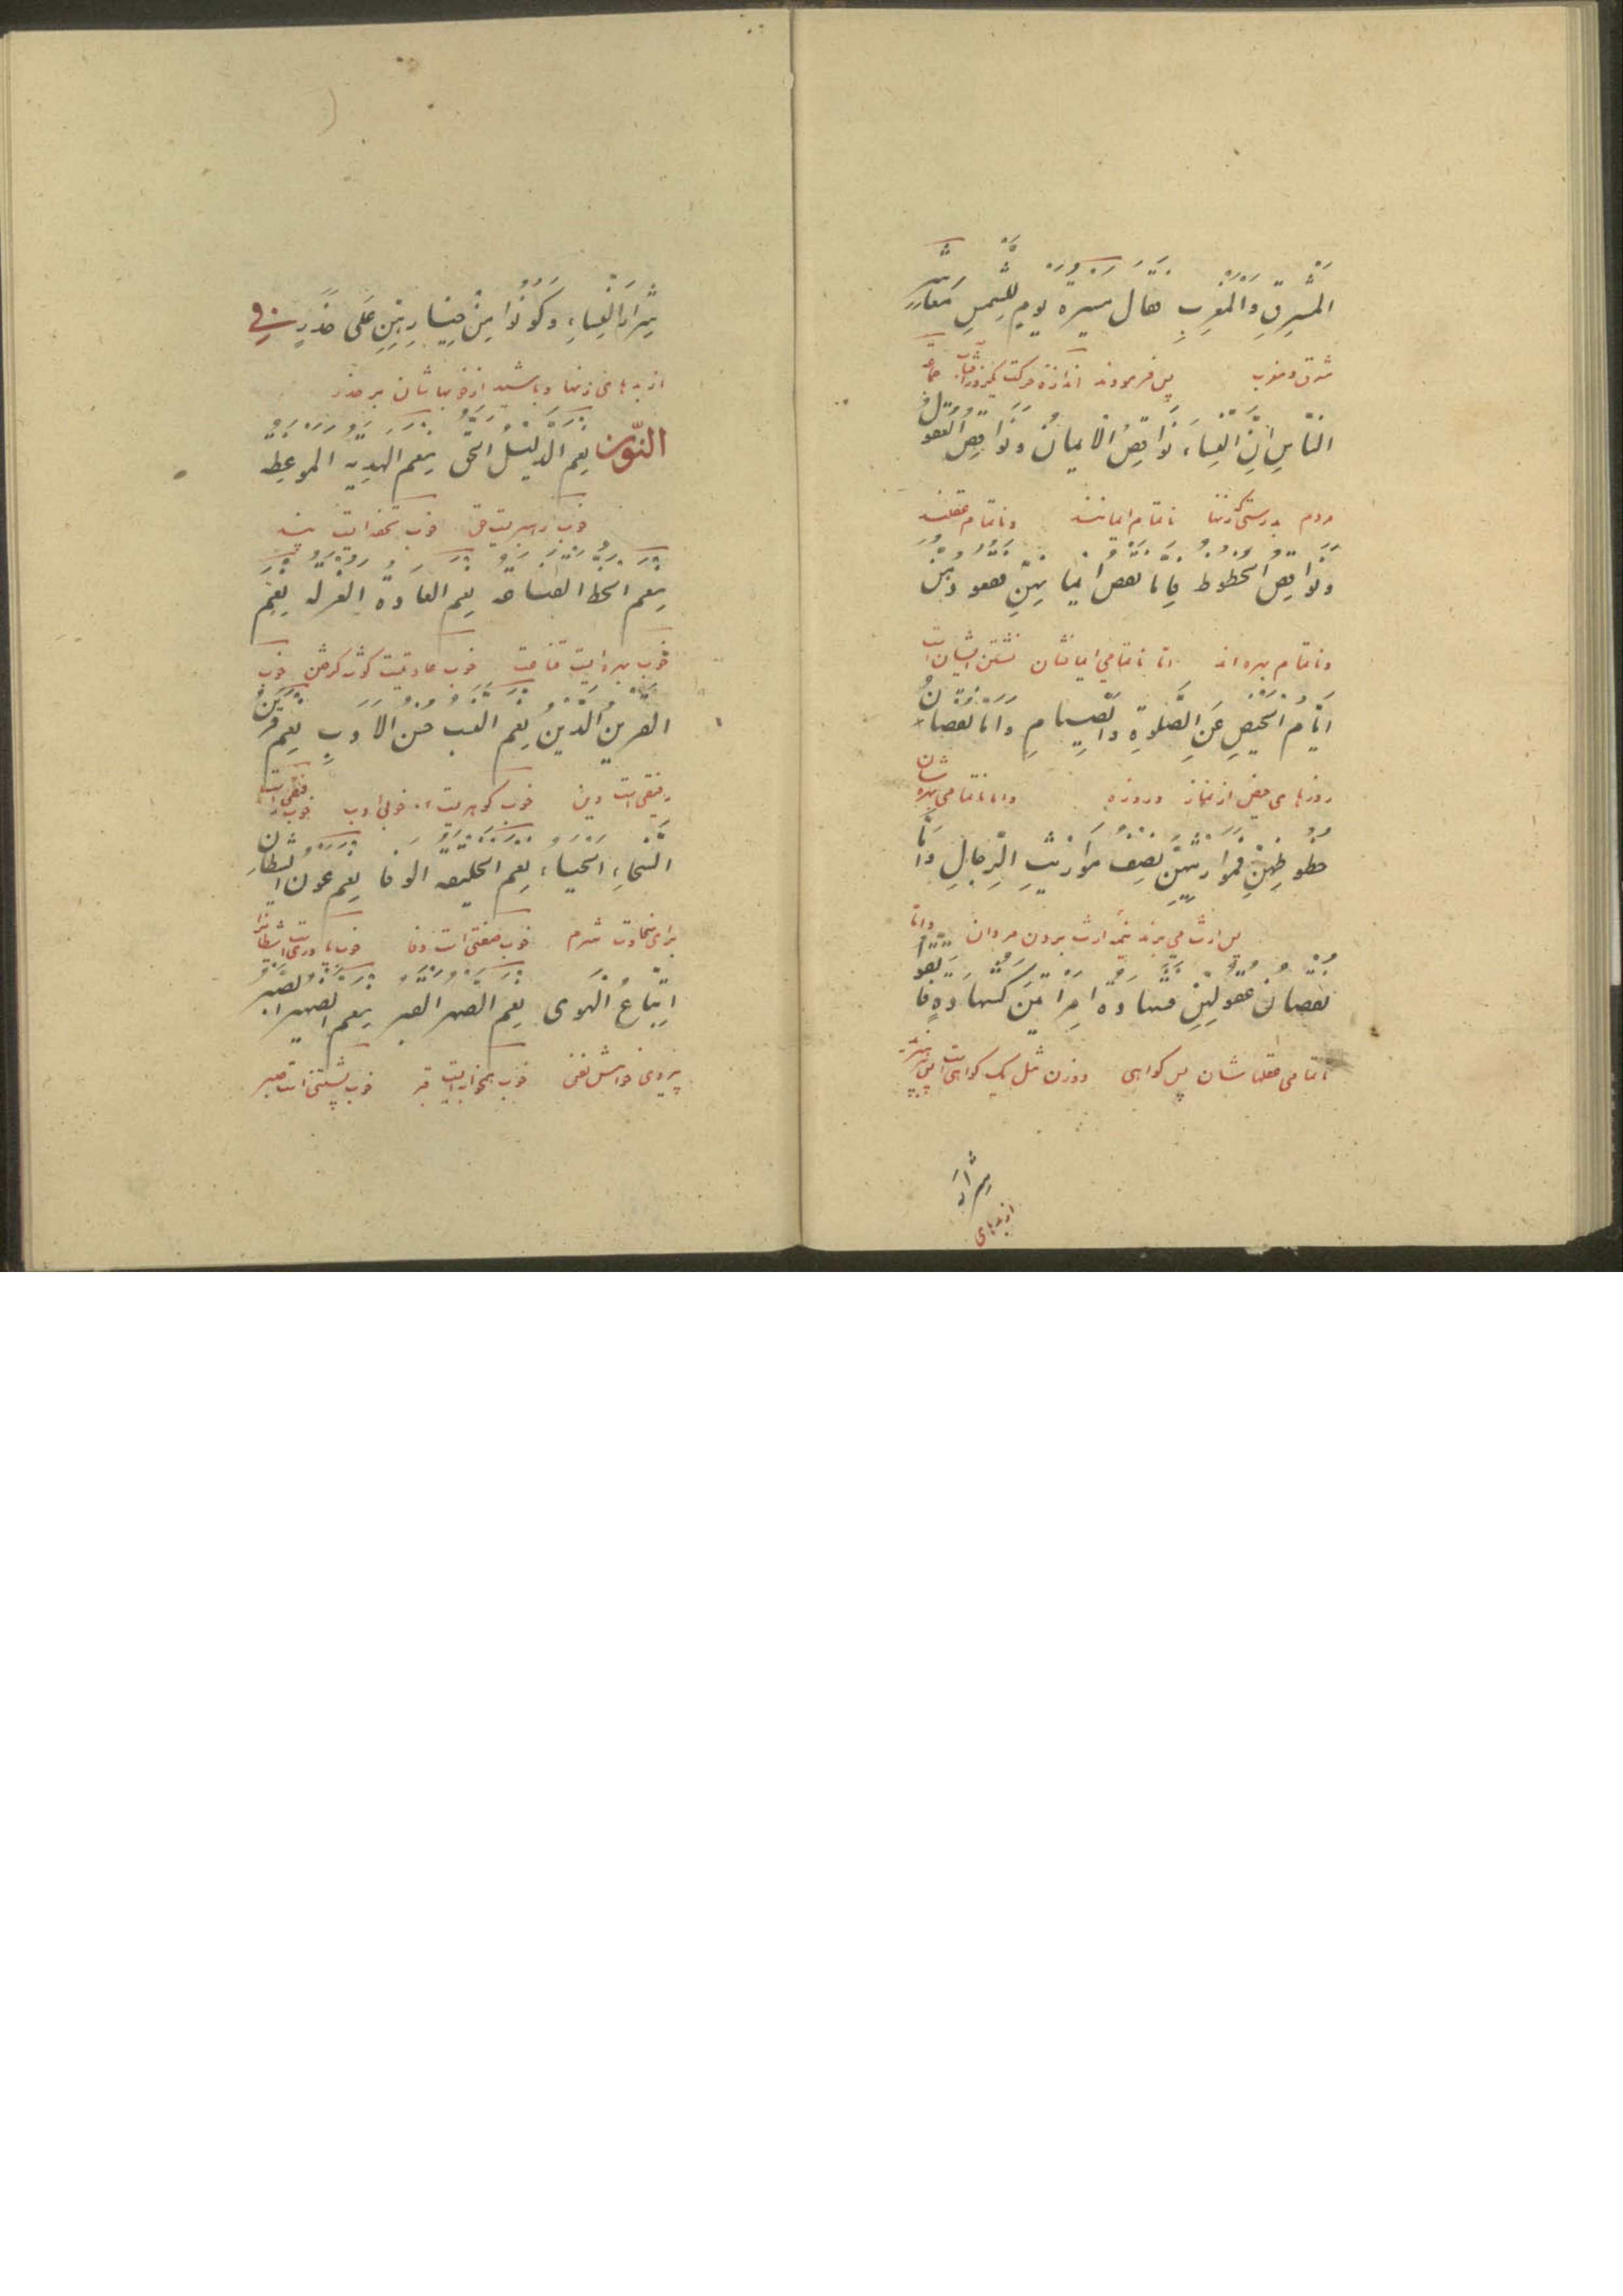 المَشْرِقِ وَالْمَغْرِبِ فَقَالَ مَسِيرَةُ يَوْمٍ لِلشَّمْسِ مَعَاشِرَ
مشرق و مغرب پس فرمودند اندازه حرکت یکروز آفتاب
النّاسِ اِنَّ النِّسَاءَ نَوَاقِصُ الْاِیمَانِ وَنَوَاقِصُ الْعُقُولِ
مردم بدرستی که زنها ناتمام ایمانند و ناتمام عقلند
وَنَوَاقِصُ الْحُظُوظِ فَاَمَّا نَقْصُ اِیمَانِهِنَّ فَقُعُودُهُنَّ
و ناتمام بهره اند اما ناتمامی ایمانشان نشستن ایشان است
اَیَّامَ الْحَیْضِ عَنِ الصَّلٰوةِ وَالصِّیَامِ وَاَمَّا نُقْصَانُ
روزهای حیض از نماز و روزه و اما ناتمامی بهره شان
حُظُوظِهِنَّ فَمَوَارِیثُهُنَّ نِصْفُ مَوَارِیثِ الرِّجَالِ وَاَمَّا
پس ارث می برند نیمه ارث بردن مردان و اما
نُقْصَانُ عُقُولِهِنَّ فَشَهَادَةُ امْرَاَتَیْنِ كَشَهَادَةٍ فَاتَّقُوا
ناتمامی عقلهاشان پس گواهی دو زن مثل یک گواهی است پس بپرهیزید
شِرَارَ
از بدهای
شِرَارَ النِّسَاءِ وَكُونُوا مِنْ خِیَارِهِنَّ عَلَى حَذَرٍ فِی
از بدهای زنها و باشید از خوبهاشان بر حذر
النّون نِعْمَ الدَّلِیْلُ الْحَقُّ نِعْمَ الْهَدِیَّةُ الْمَوْعِظَةُ
خوب رهبریست حق خوب تحفه ایست پند
نِعْمَ الْحَظُّ الْقَنَاعَةُ نِعْمَ الْعَادَةُ الْعُزْلَةُ نِعْمَ
خوب بهره ایست قناعت خوب عادتیست گوشه گرفتن خوب
الْقَرِینُ الدِّینُ نِعْمَ النَّسَبُ حُسْنُ الْاَدَبِ نِعْمَ قَرِینُ
رفیقی است دین خوب گوهریست خوبی ادب خوب رفیقی است
السَّخَاءِ الْحَیَاءُ نِعْمَ الْخَلِیقَةُ الْوَفَا نِعْمَ عَوْنُ الشَّیْطَانِ
برای سخاوت شرم خوب صفتی است وفا خوب یاوری است شیطانرا
اتِّبَاعُ الْهَوَى نِعْمَ الصِّهْرُ الْقَبْرُ نِعْمَ الظَّهِیرُ الصَّبْرُ
پیروی خواهش نفس خوب همخوابه ایست قبر خوب پشتی است صبر